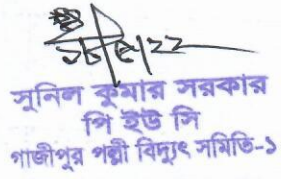 সুনিল কুমার সরকার
পি ইউ সি
গাজীপুর পল্লী বিদ্যুৎ সমিতি-১